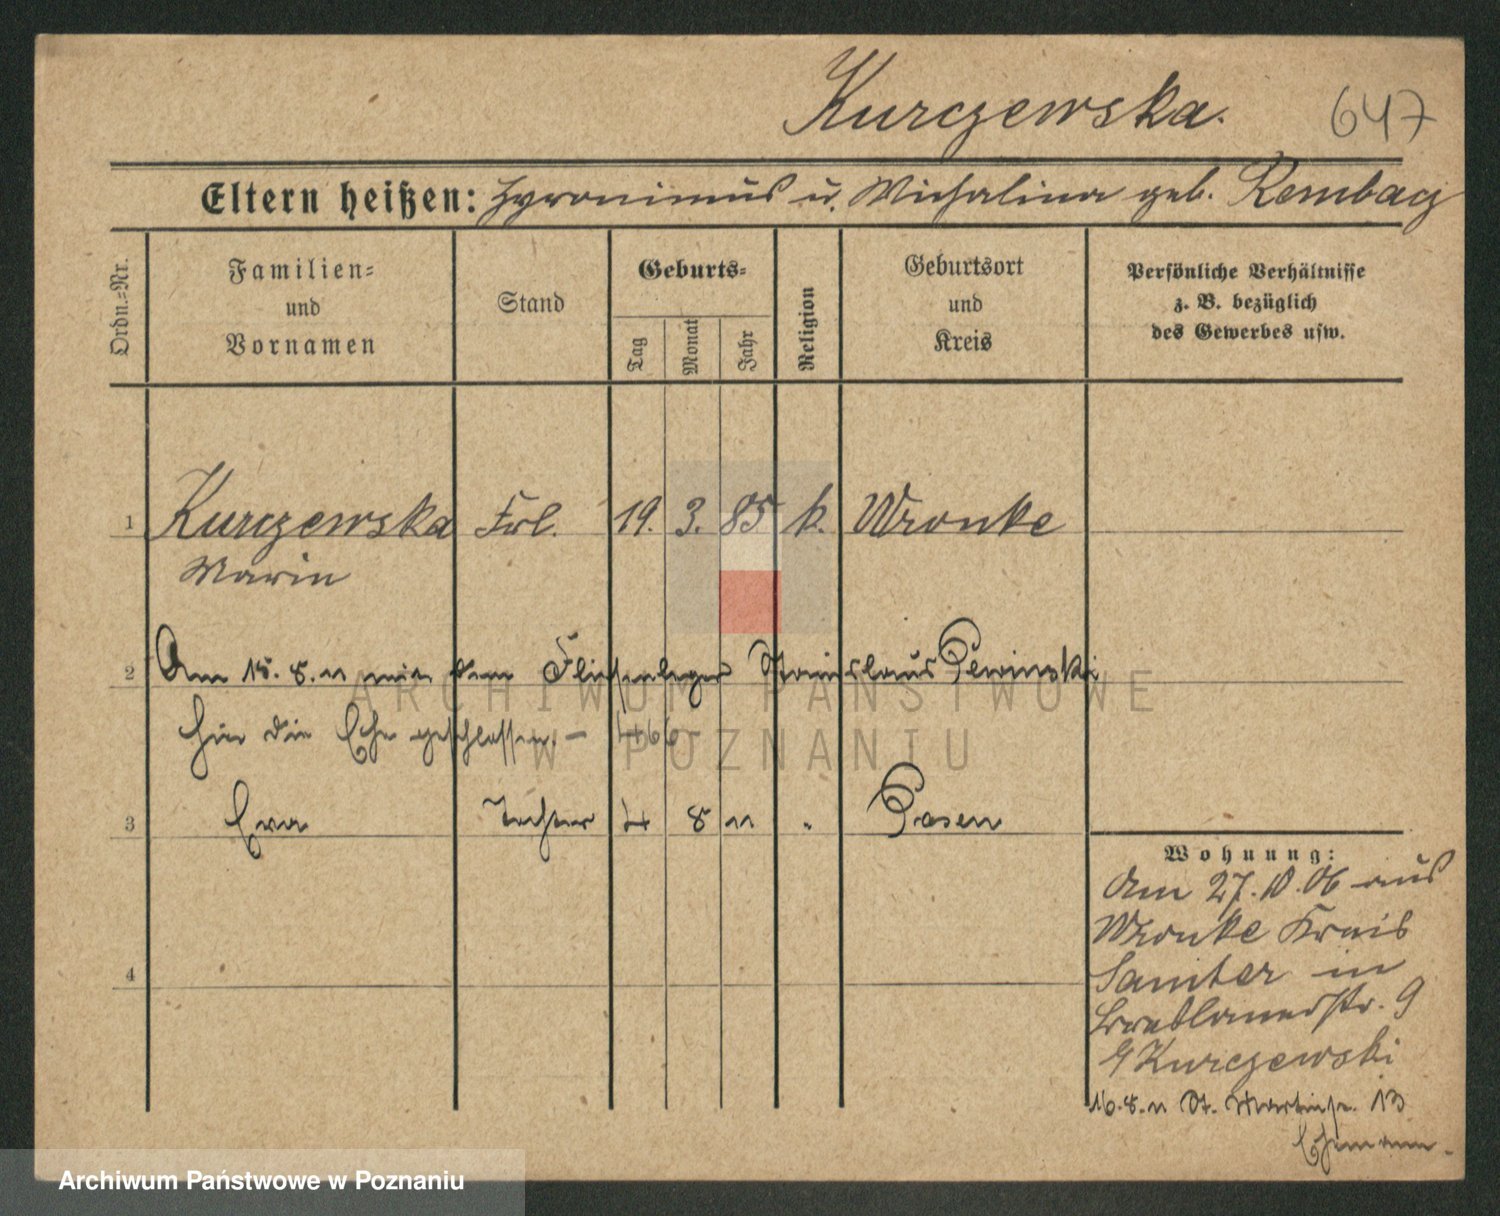 Kurczewska. 647
Eltern heißen: Hyronimus u. Michalina geb. Rembacz
Ordn.=Nr.
Familien=
und
Vornamen
Stand
Geburts=
Tag
Monat
Jahr
Religion
Geburtsort
und
Kreis
Persönliche Verhältnisse
z. B. bezüglich
des Gewerbes usw.
1 Kurczewska Frl. 19. 3. 85 k. Wronke
Marie
2 Am 15. 8. 11 mit dem Fliesenleger Stanislaus
hier die Ehe geschlossen. – 466
3 Eva Tochter 4 8 11 " Posen
4
Wohnung:
Am 27. 10. 06 aus
Wronke Kreis
Samter in
Breslauerstr. 9
Kurczewski
16. 8. 11 St. Martinstr. 13
Ehemann.
ARCHIWUM PAŃSTWOWE
W POZNANIU
Archiwum Państwowe w Poznaniu